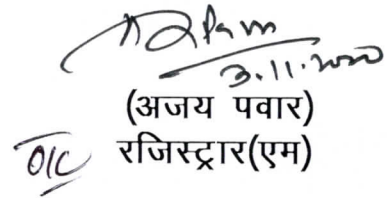 3.11.2020
(अजय पवार)
O/C रजिस्ट्रार(एम)